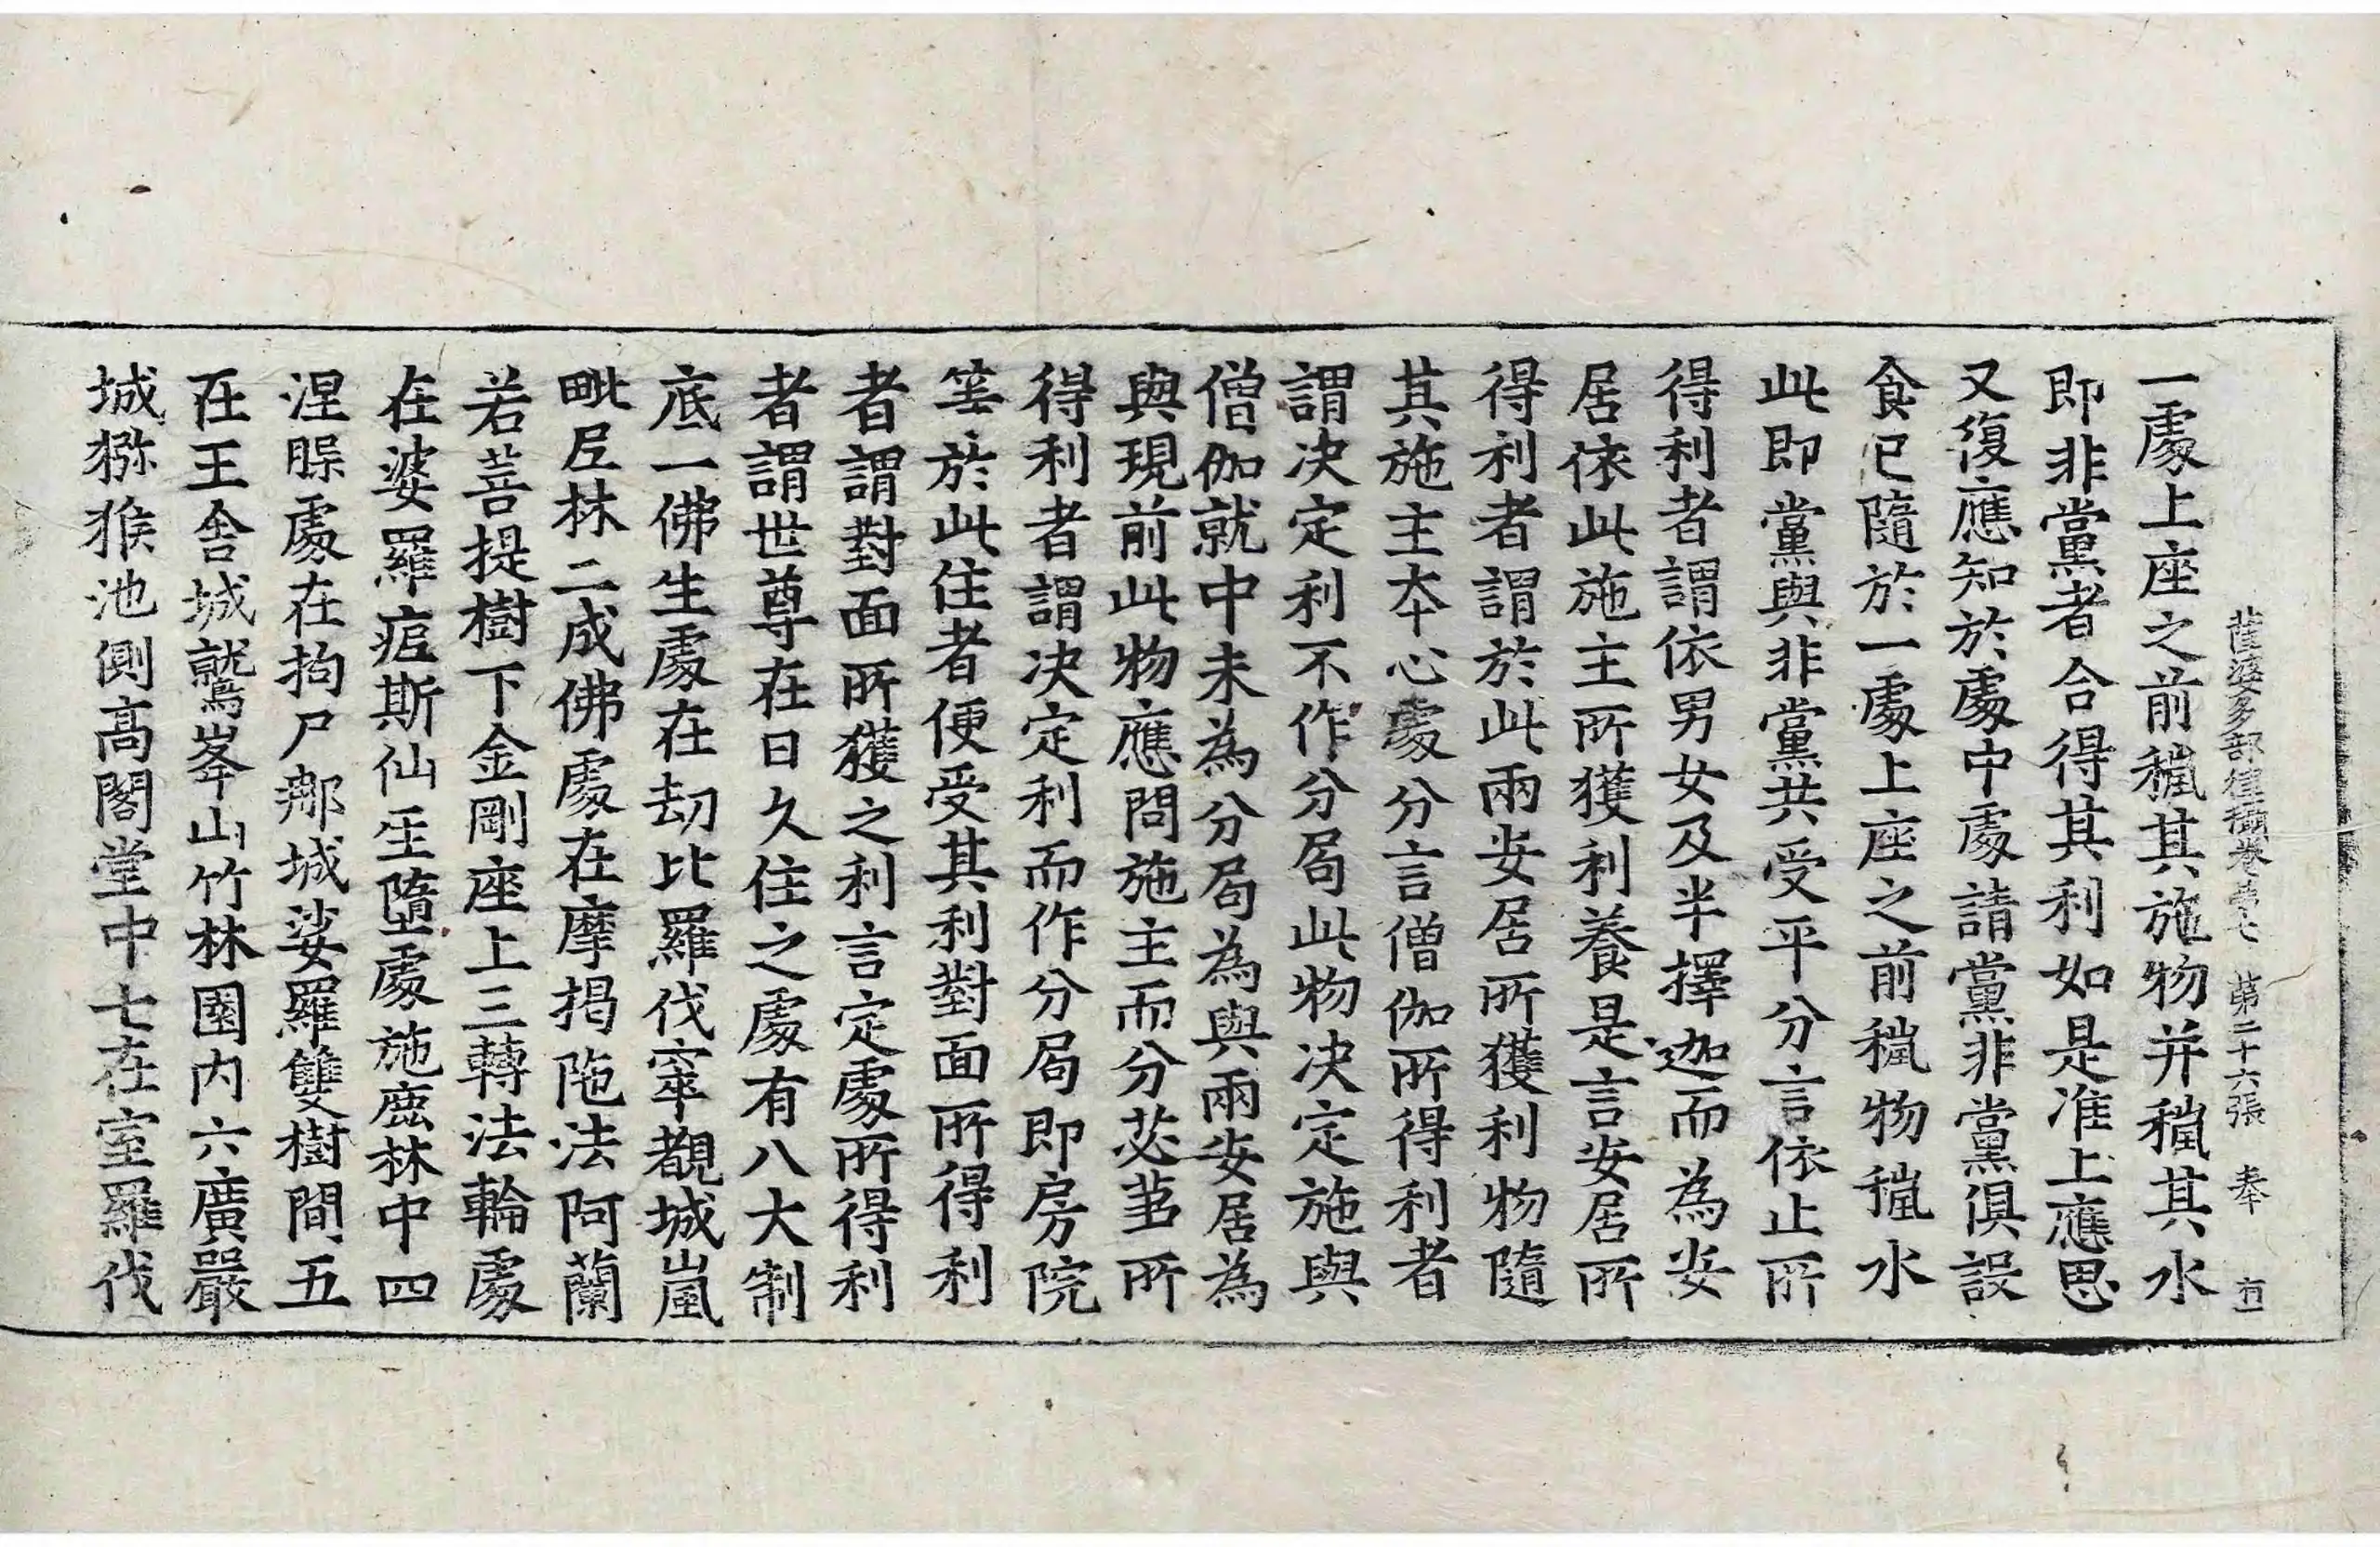 薩婆多部律攝卷第七 第二十六張 奉
一處上座之前䅖其施物并䅖其水
即非黨者合得其利如是准上應思
又復應知於處中處請黨非黨俱設
食已隨於一處上座之前䅖物䅖水
此即黨與非黨共受平分言依止所
得利者謂依男女及半擇迦而為安
居依此施主所獲利養是言安居所
得利者謂於此兩安居所獲利物隨
其施主夲心處分言僧伽所得利者
謂决定利不作分局此物决定施與
僧伽就中未為分局為與兩安居為
與現前此物應問施主而分苾芻所
得利者謂决定利而作分局即房院
等於此住者便受其利對面所得利
者謂對面所獲之利言定處所得利
者謂世尊在日久住之處有八大制
底一佛生處在劫比羅伐窣覩城嵐
毗尼林二成佛處在摩揭陁法阿蘭
若菩提樹下金剛座上三轉法輪處
在婆羅痆斯仙人墮處施鹿林中四
涅槃處在拘尸那城娑羅雙樹間五
在王舍城鷲峯山竹林園內六廣嚴
城獼猴池側高閣堂中七在室羅伐